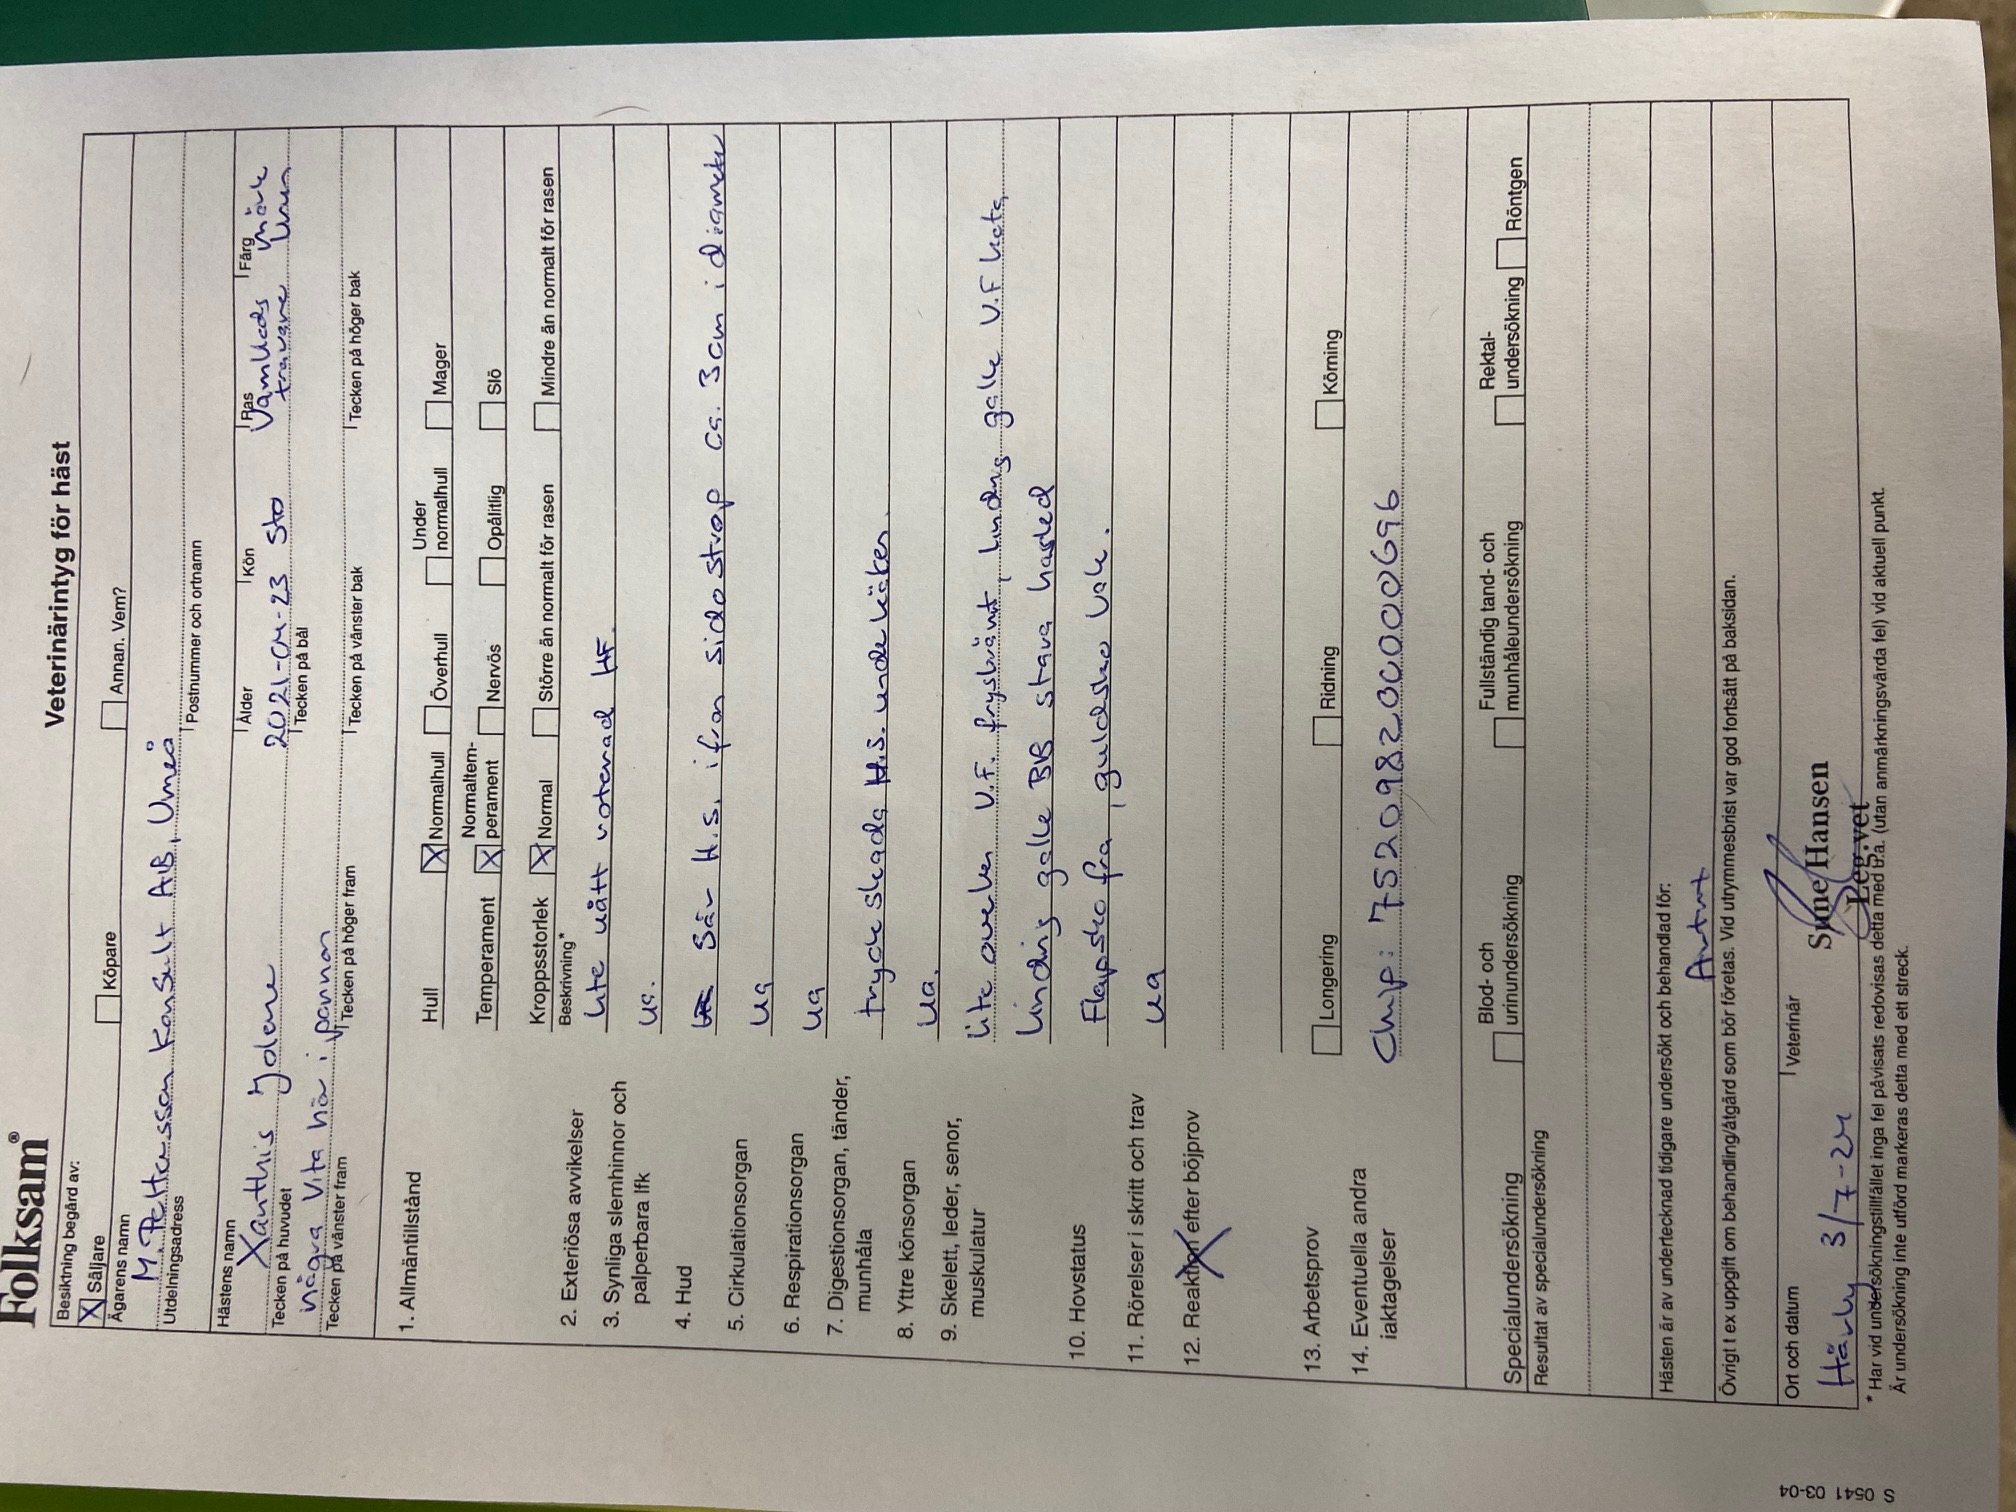 Folksam®
Veterinärintyg för häst
Besiktning begärd av:
X Säljare Köpare Annan. Vem?
Ägarens namn
M. Pettersson Konsult AB, Umeå
Utdelningsadress Postnummer och ortnamn
Hästens namn Ålder Kön Ras Färg
Xanthis Jolene 2021-04-23 Sto Varmblods travare mörk brun
Tecken på huvudet Tecken på bål
några vita hår i pannan
Tecken på vänster fram Tecken på höger fram Tecken på vänster bak Tecken på höger bak
1. Allmäntillstånd Hull X Normalhull Överhull Under normalhull Mager
Temperament X Normaltemperament Nervös Opålitlig Slö
Kroppsstorlek X Normal Större än normalt för rasen Mindre än normalt för rasen
Beskrivning*
2. Exteriösa avvikelser lite utåt roterad HF.
3. Synliga slemhinnor och palperbara lfk ua.
4. Hud Sår H.s. ifrån sidostropp ca. 3cm i diameter
5. Cirkulationsorgan ua
6. Respirationsorgan ua
7. Digestionsorgan, tänder, munhåla tryckskada H.s. underkäken.
8. Yttre könsorgan ua.
9. Skelett, leder, senor, muskulatur lite överben V.F. frysbränt, lindrig galle V.F kota,
lindrig galle BB stora hasled
10. Hovstatus Flapsko fra, guldsko bak.
11. Rörelser i skritt och trav ua
12. Reaktion efter böjprov
13. Arbetsprov Longering Ridning Körning
14. Eventuella andra iaktagelser Chip: 752098230000696
Specialundersökning Blod- och urinundersökning Fullständig tand- och munhåleundersökning Rektalundersökning Röntgen
Resultat av specialundersökning
Hästen är av undertecknad tidigare undersökt och behandlad för:
Övrigt t ex uppgift om behandling/åtgärd som bör företas. Vid utrymmesbrist var god fortsätt på baksidan.
Ort och datum Veterinär
3/7-24 Sune Hansen
Leg.vet
* Har vid undersökningstillfället inga fel påvisats redovisas detta med u.a. (utan anmärkningsvärda fel) vid aktuell punkt.
Är undersökning inte utförd markeras detta med ett streck.
S 0541 03-04